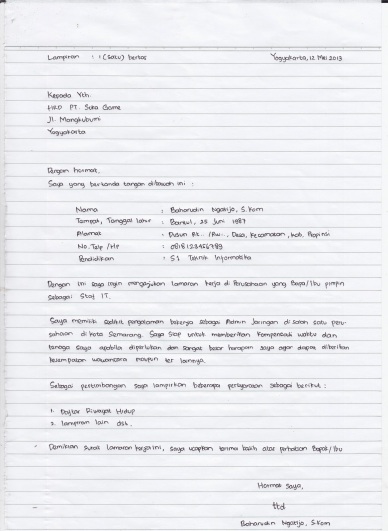 Lampiran : 1 (satu) berkas Yogyakarta, 12 Mei 2013
Kepada Yth.
HRD PT. Suka Game
Jl. Mangkubumi
Yogyakarta
Dengan hormat,
Saya yang bertanda tangan dibawah ini :
Nama : Baharudin Ngatijo, S.Kom
Tempat, Tanggal lahir : Bantul, 25 Juni 1987
Alamat : Dusun Rt.. /Rw.., Desa, Kecamatan, kab, Propinsi
No. Telp /Hp : 0818123456789
Pendidikan : S1 Teknik Informatika
Dengan ini saya ingin mengajukan lamaran kerja di Perusahaan yang Bapa/Ibu pimpin
sebagai Staf IT.
Saya memiliki sedikit pengalaman bekerja sebagai Admin Jaringan di salah satu peru-
sahaan di kota Semarang. Saya siap untuk memberikan kompensasi waktu dan
tenaga saya apabila diperlukan dan sangat besar harapan saya agar dapat diberikan
kesempatan wawancara maupun tes lainnya.
Sebagai pertimbangan saya lampirkan beberapa persyaratan sebagai berikut :
1. Daftar Riwayat Hidup
2. lampiran lain dsb.
Demikian surat lamaran kerja ini, saya ucapkan terima kasih atas perhatian Bapak/Ibu
Hormat Saya,
ttd
Baharudin Ngatijo, S.Kom